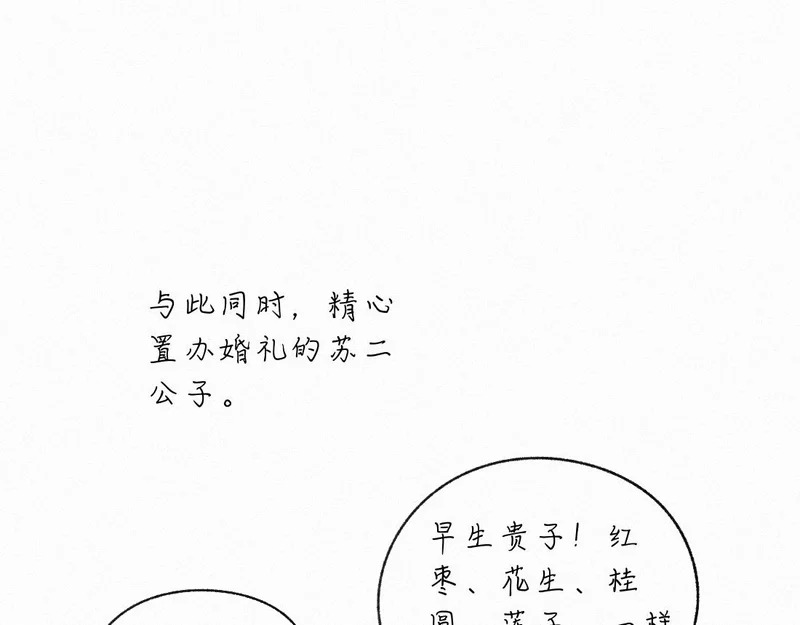 与此同时，精心
置办婚礼的苏二
公子。
早生贵子！红
枣、花生、桂
圆、莲子，一样